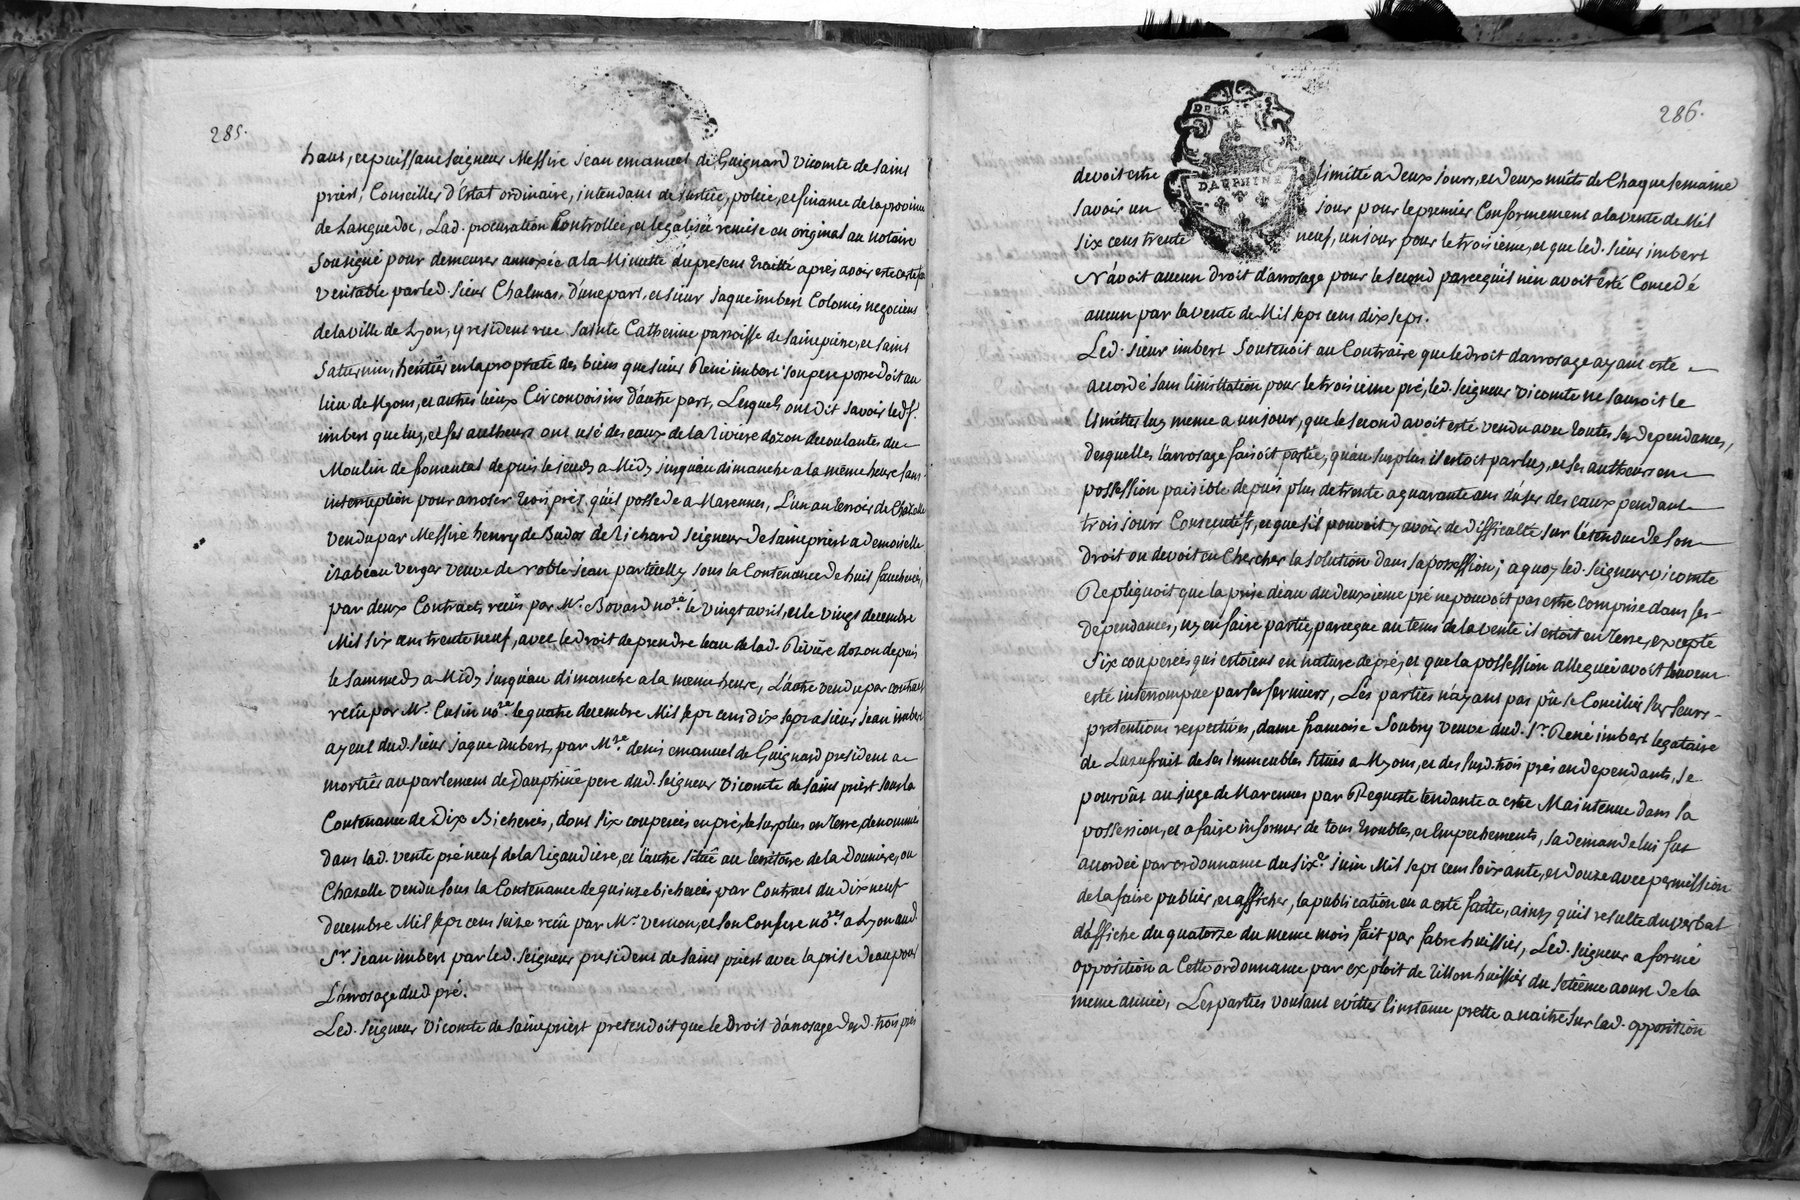 285.
haut, et puissant seigneur Messire jean emanuel de Guignard Vicomte de saint
priest, Conseiller d'Estat ordinaire, intendant de justice, police, et finance de la province
de Languedoc, Lad. procuration Controllée, et legalisée remise en original au notaire
sousigné pour demeurer annexée a la Minutte du present traitté apres avoir esté certifiée
veritable par led. sieur Chalmas, d'une part, et sieur jaque imbert Colomés negociant
de la ville de Lyon, y resident rue sainte Catherine parroisse de saint pierre, et saint
saturnin, héritier en la propriété des biens que sieur René imbert son pere possedoit au
lieu de Myons, et autres lieux Circonvoisins d'autre part, Lesquels ont dit savoir led. Sr.
imbert que luy, et ses autheurs ont usé des eaux de la Riviere d'ozon decoulantes du
Moulin de fromental depuis le jeudy a Midy jusqu'au dimanche a la même heure sans
interruption pour arroser trois prés qu'il possede a Marennes, L'un au terroir de Chazelle
vendu par Messire henry de Budos de Richard seigneur de saint priest a demoiselle
izabeau verger veuve de noble jean particelly sous la Contenance de huit faucherées,
par deux Contracts reçus par Me. Bovard nore. le vingt avril, et le vingt decembre
Mil six cens trente neuf, avec le droit de prendre leau de lad. Riviere dozon depuis
le sammedy a Midy jusqu'au dimanche a la meme heure, L'autre vendu par contract
reçu par Me. Cusin nore. le quatre decembre Mil sept cens dix sept a sieur jean imbert
ayeul dud. sieur jaque imbert, par Mre. denis emanuel de Guignard president a
mortier au parlement de Dauphiné pere dud. seigneur vicomte de saint priest sous la
Contenance de Dix Bicherées, dont six couperées en pré, le surplus en terre, denommée
dans lad. vente pré neuf de la Rigaudiere, et l'autre situé au territoire de la Douniere, ou
Chazelle vendu sous la Contenance de quinze bicherées par Contract du dix neuf
decembre Mil sept cens seize reçu par Me. vernon, et son Confrere nores. a Lyon aud.
Sr. jean imbert par led. seigneur president de saint priest avec la prise deau pour
L'arrosage dud. pré.
Led. seigneur Vicomte de saint priest pretendoit que le Droit d'arrosage desd. trois prés
286.
DEUX SOLS
DAUPHINE
devoit estre limitté a deux jours, et deux nuits de Chaque semaine
savoir un jour pour le premier Conformement a la vente de Mil
six cens trente neuf, un jour pour le troisieme, et que led. sieur imbert
N'avoit aucun droit d'arrosage pour le second parcequ'il n'en avoit esté Concedé
aucun par la vente de Mil sept cens dix sept.
Led. sieur imbert soutenoit au Contraire que le droit darrosage ayant esté
accordé sans limittation pour le troisieme pré, led. seigneur vicomte ne sauroit le
limitter luy meme a un jour, que le second avoit esté vendu avec toutes ses dependances,
desquelles l'arrosage faisoit partie, qu'au surplus il estoit par luy, et ses autheurs en
possession paisible depuis plus de trente a quarante ans d'user des eaux pendant
trois jours Consecutifs, et que s'il pouvoit y avoir de difficulté sur l'étendue de son
droit on devoit en Chercher la solution dans sa possession; a quoy led. seigneur vicomte
Repliquoit que la prise d'eau du deuxieme pré ne pouvoit pas estre comprise dans ses
dependances, ny en faire partie, parceque au tems de la vente il estoit en terre, excepté
six couperées qui estoient en nature de pré, et que la possession alleguée avoit souvent
esté interrompue par ses fermiers, Les parties n'ayant pas pû se Concilier sur leurs
pretentions respectives, dame francoise Soubry veuve dud. Sr. René imbert legataire
de Lusufruit de ses immeubles situés a Myons, et des susd. trois prés en dependants, se
pourvût au juge de Marennes par Requeste tendante a estre Maintenue dans sa
possession, et a faire informer de tous troubles, et Empechements, sa demande lui fut
accordée par ordonnance du sixe. juin Mil sept cens soixante, et douze avec permission
de la faire publier, et afficher, la publication en a esté faitte, ainsy qu'il resulte du verbal
d'affiche du quatorze du meme mois fait par fabre huissier, Led. seigneur a formé
opposition a Cette ordonnance par exploit de tillon huissier du setième aoust de la
meme année, Les parties voulant evitter l'instance prette a naitre sur lad. opposition